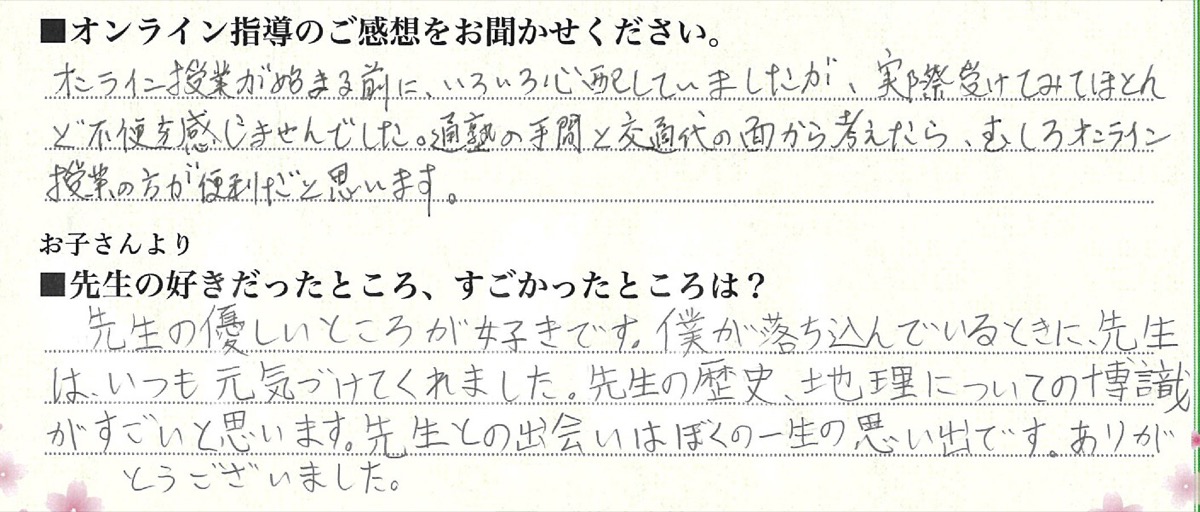 ■オンライン指導のご感想をお聞かせください。
オンライン授業が始まる前に、いろいろ心配していましたが、実際受けてみてほとん
ど不便を感じませんでした。通塾の手間と交通代の面から考えたら、むしろオンライン
授業の方が便利だと思います。
お子さんより
■先生の好きだったところ、すごかったところは？
先生の優しいところが好きです。僕が落ち込んでいるときに、先生
は、いつも元気づけてくれました。先生の歴史、地理についての博識
がすごいと思います。先生との出会いはぼくの一生の思い出です。ありが
とうございました。